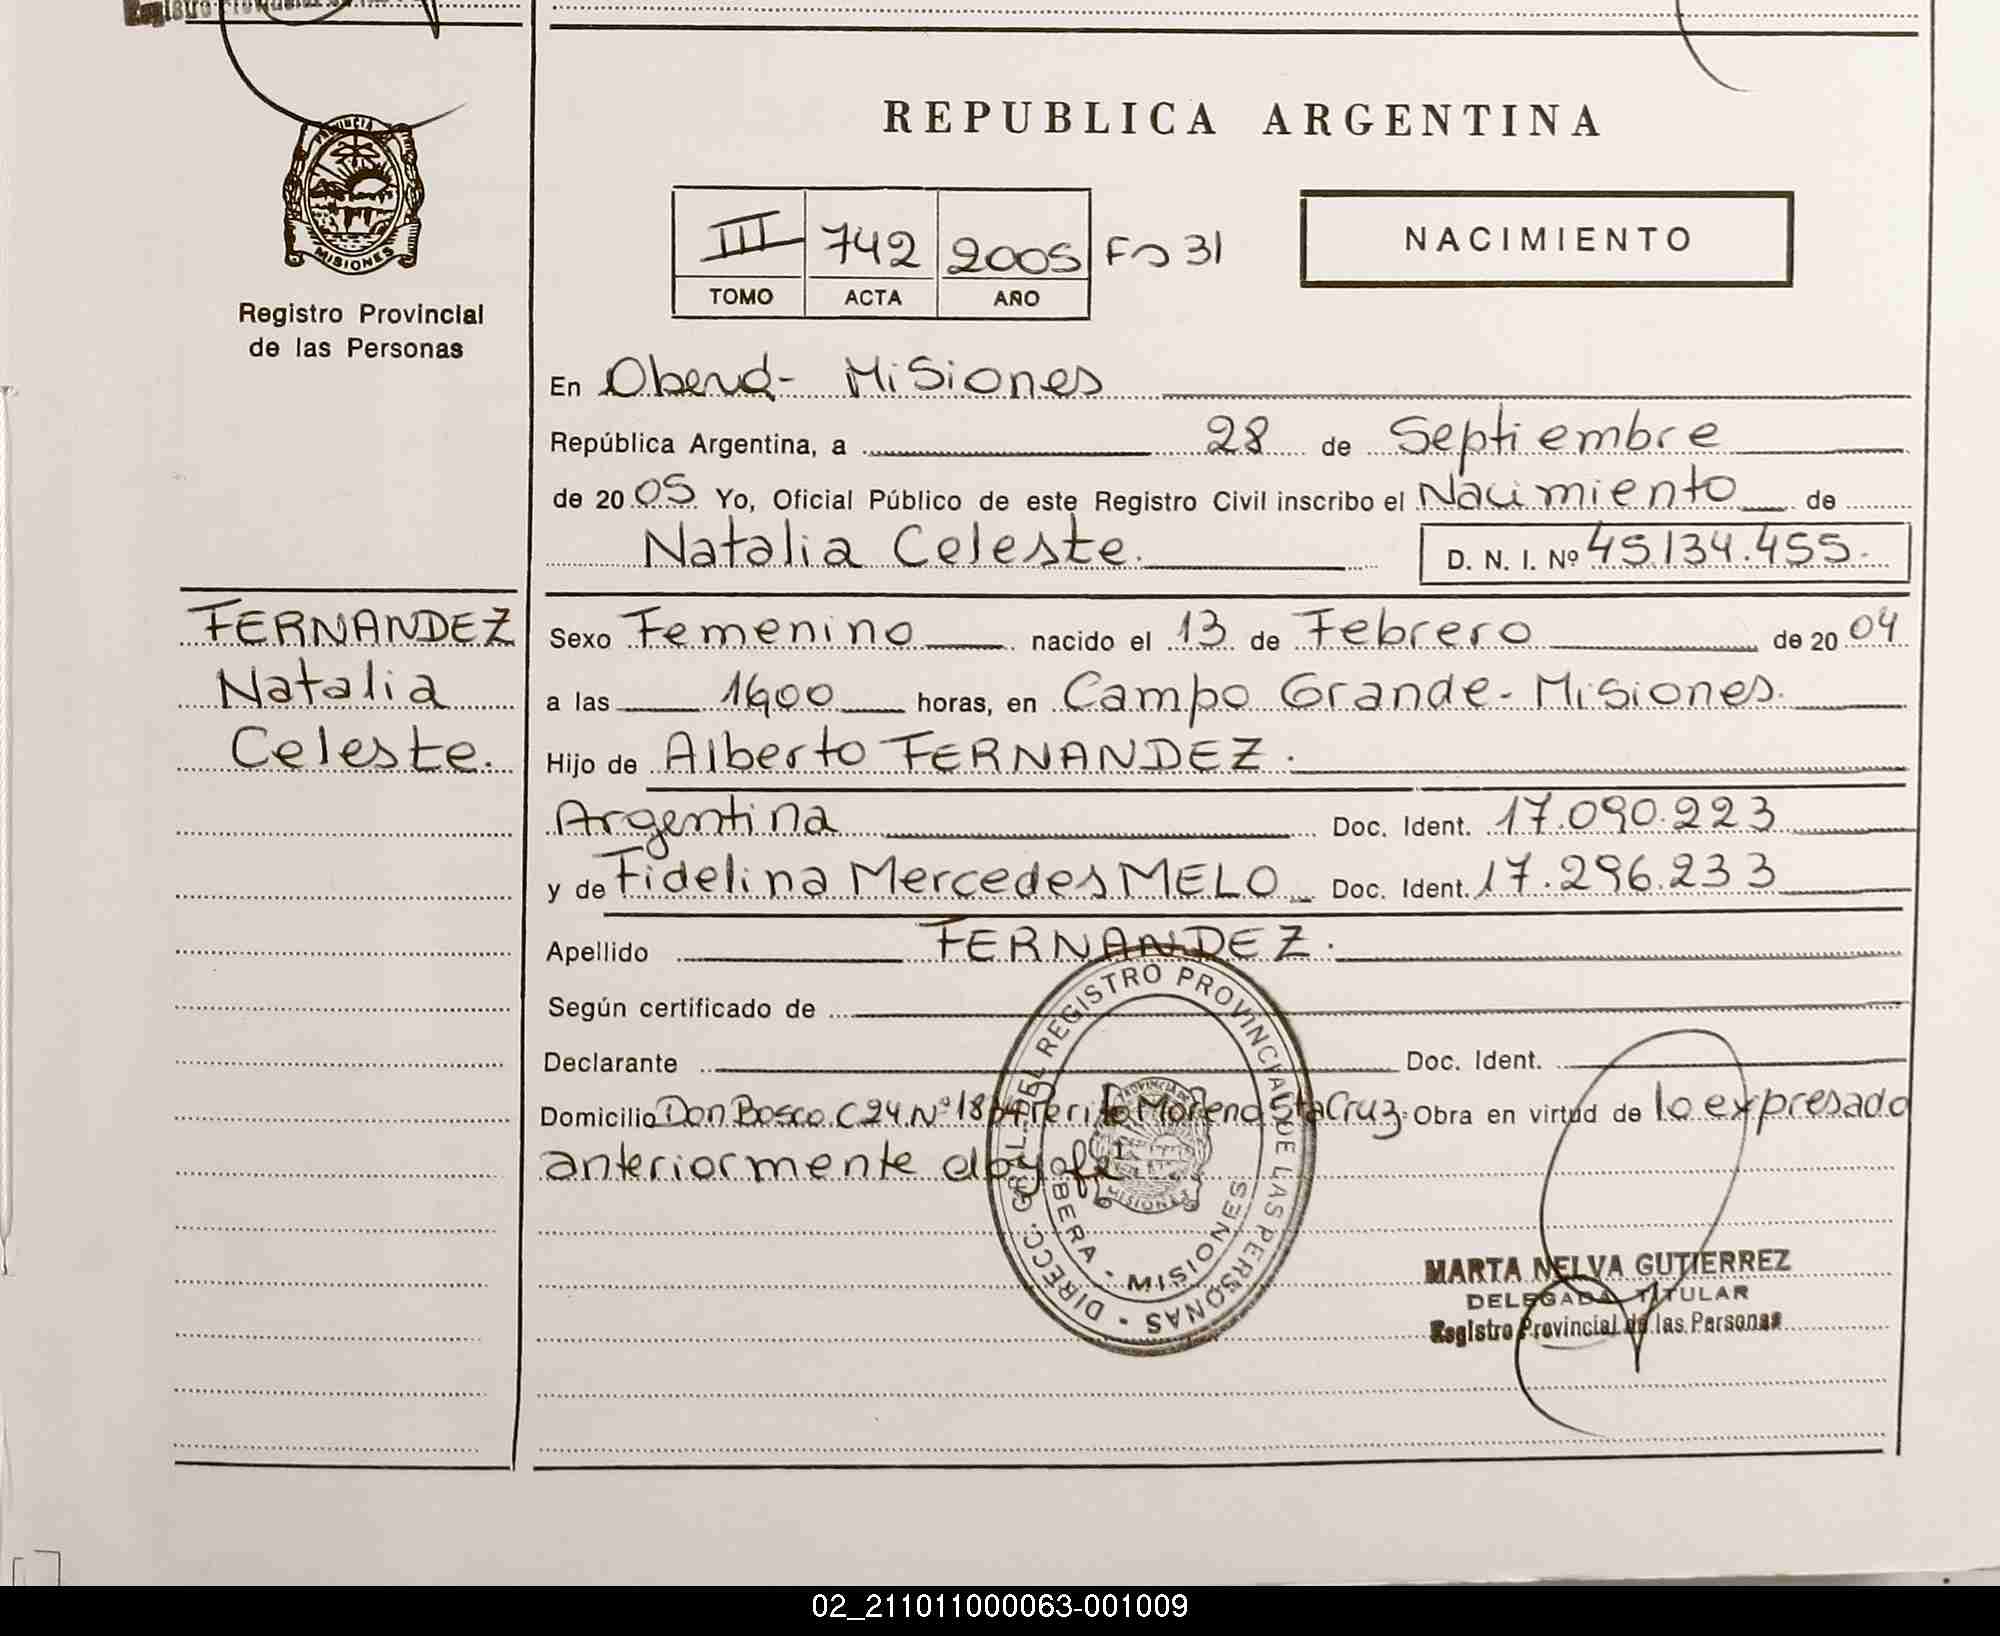 Registro Provincial
PROVINCIA
MISIONES
Registro Provincial
de las Personas
REPUBLICA ARGENTINA
III 742 2005 Fo 31
TOMO ACTA AÑO
NACIMIENTO
En Oberá - Misiones
República Argentina, a 28 de Septiembre
de 2005 Yo, Oficial Público de este Registro Civil inscribo el Nacimiento de
Natalia Celeste.
D. N. I. Nº 45.134.455.
FERNANDEZ
Natalia
Celeste.
Sexo Femenino nacido el 13 de Febrero de 2004
a las horas, en Campo Grande - Misiones.
Hijo de Alberto FERNANDEZ.
Argentina Doc. Ident. 17.090.223
y de Fidelina Mercedes MELO Doc. Ident. 17.296.233
Apellido FERNANDEZ.
Según certificado de
Declarante Doc. Ident.
Domicilio Don Bosco C 24 Nº Perito Moreno Sta Cruz. Obra en virtud de lo expresado
anteriormente doy fe
DIRECC. GRAL. DEL REGISTRO PROVINCIAL DE LAS PERSONAS
OBERA - MISIONES
PROVINCIA DE
MISIONES
MARTA NELVA GUTIERREZ
DELEGADA TITULAR
Registro Provincial de las Personas
02_211011000063-001009